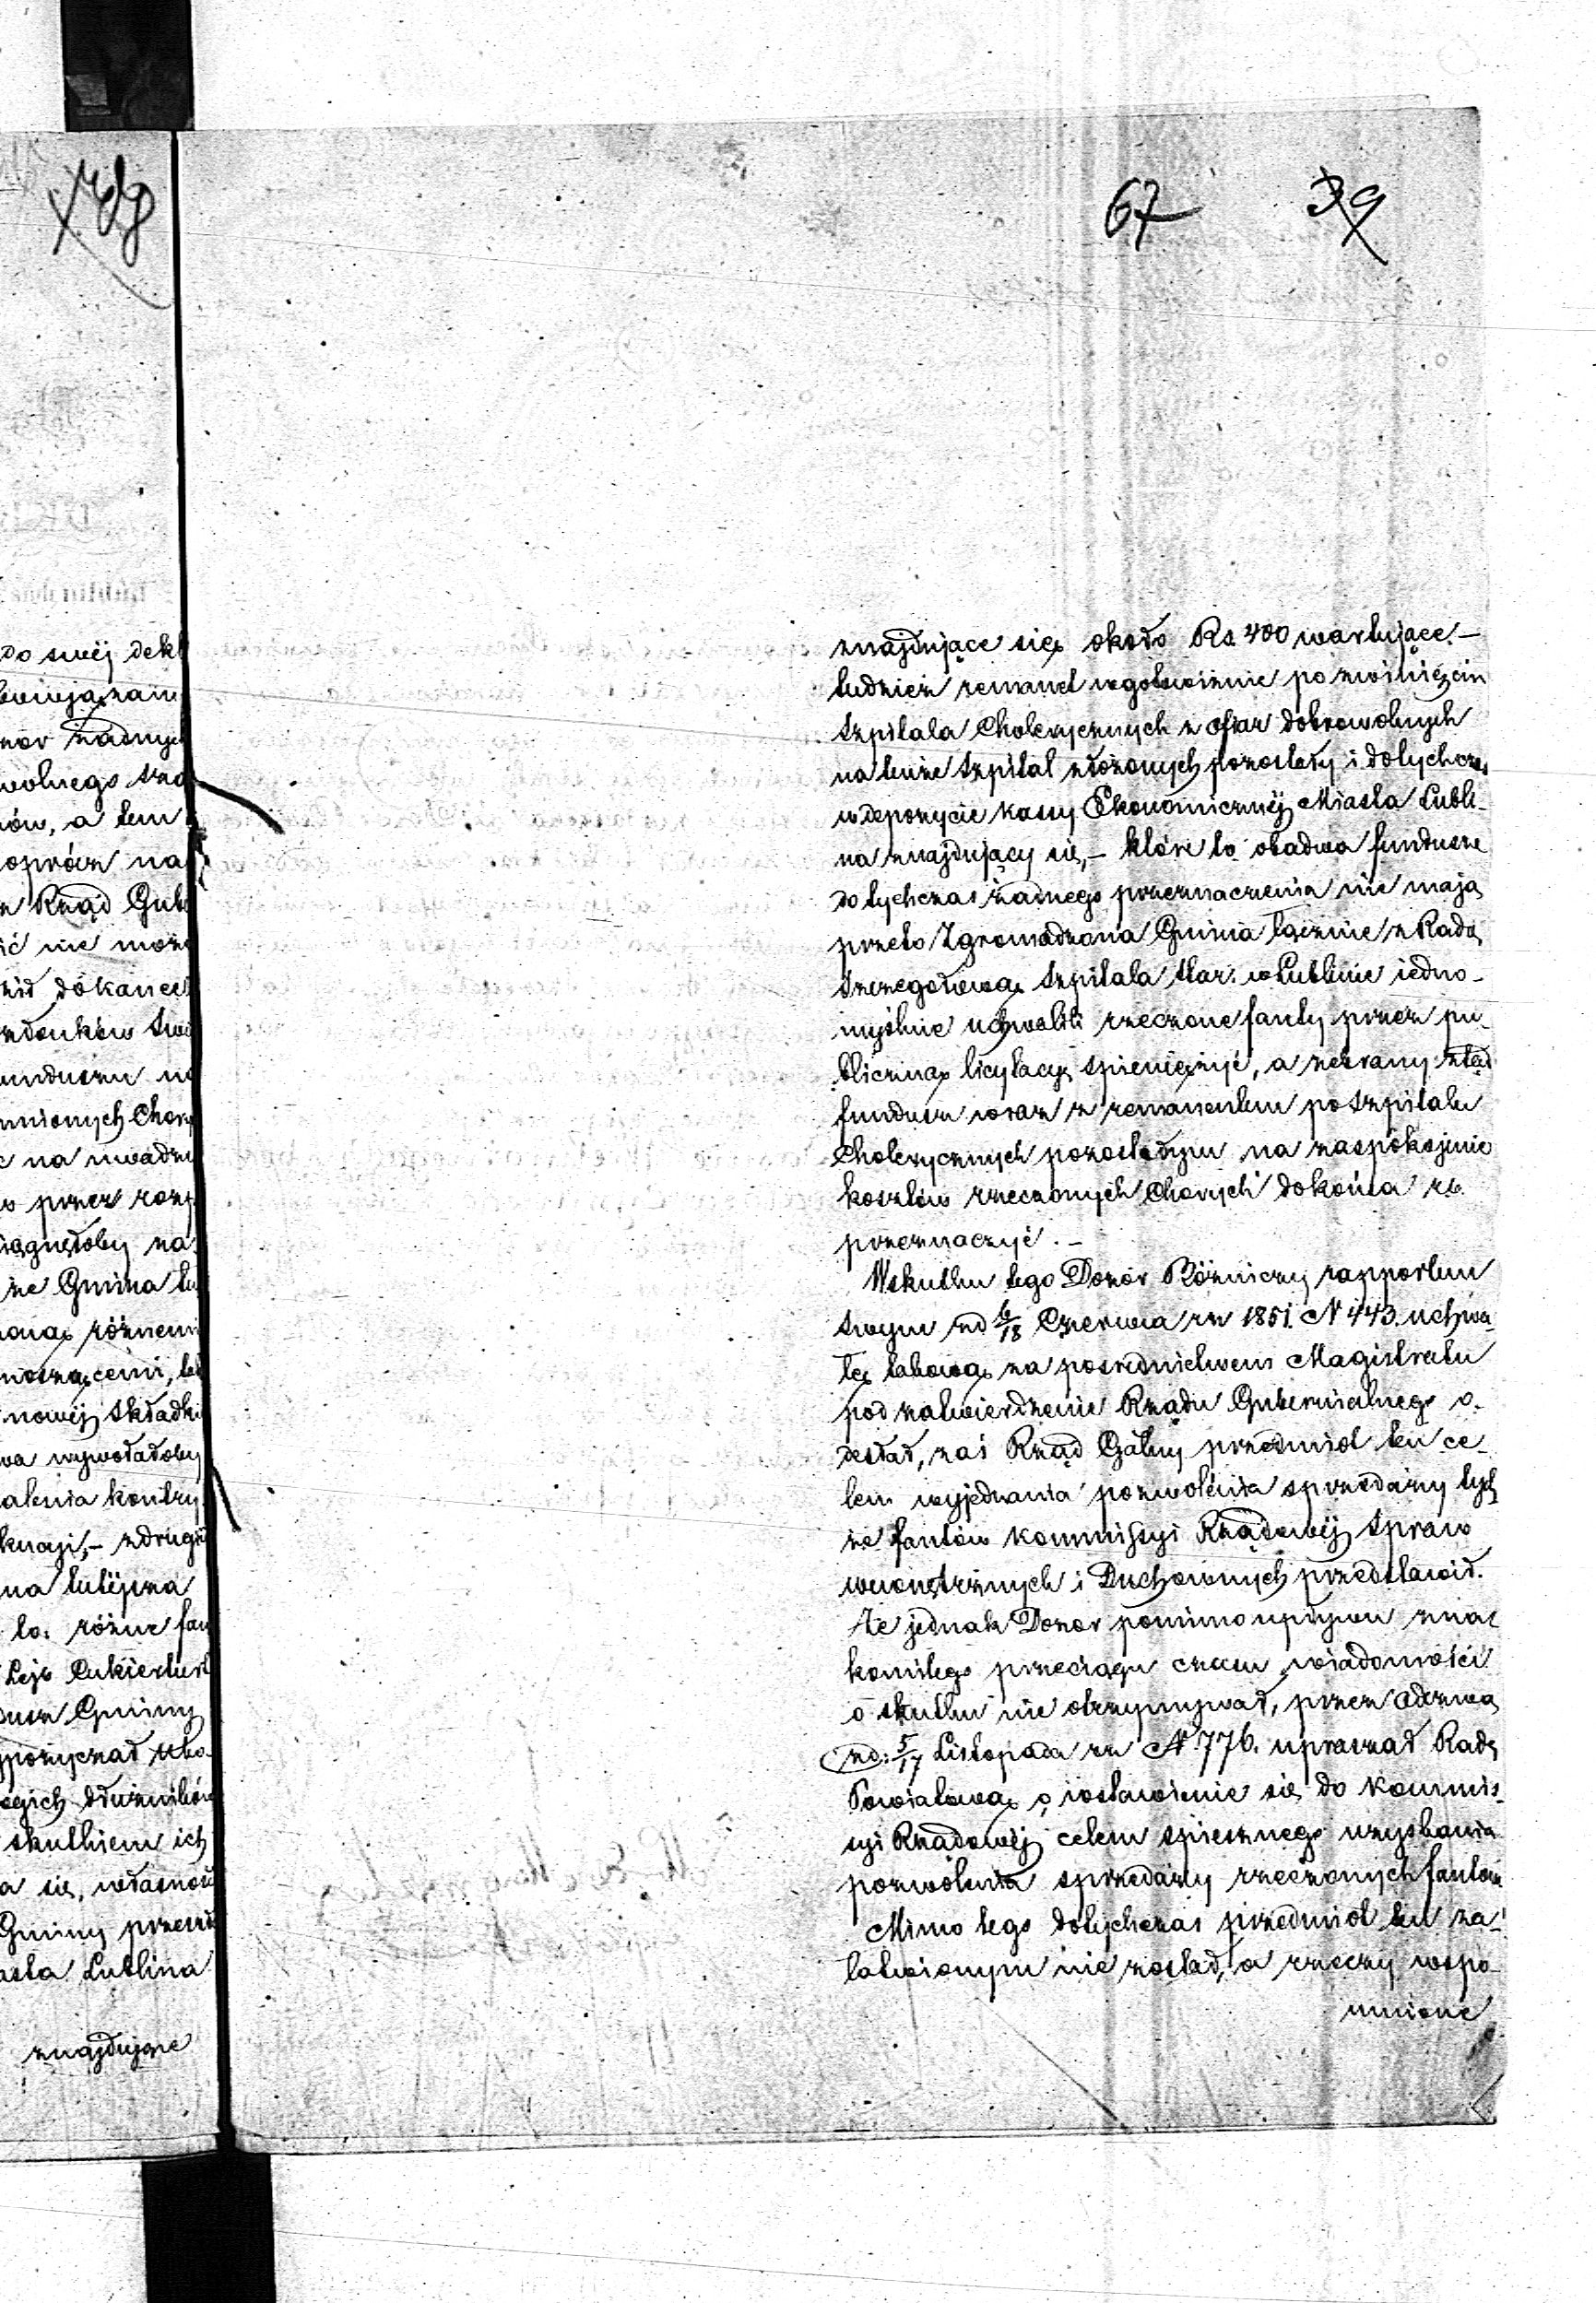 67 39
do swéj dekl
żadnych
wolnego
ów, a tem
oprócz na
Rząd Gube
ić nie może
dokancel
unduszu
mnionych Chory
na uwadze
przez rozp
iągnęłoby za
że Gmina tu
różnemi
noszącemi,
nowéj składki
wa wywołałoby
alenia kontry
zdrugiéj
na tutéjsza
to. różne fan
Leje Cukiertort
usz Gminy
pożyczał ubo-
dłużników
skutkiem ich
a się, własność
Gminy przeszł
asta Lublina
znajdujące
znajdujące się, około Rs. 400 wartujące.—
tudzież remanet wgotowiznie po zwinięciu
Szpitala Cholerycznych z ofiar dobrowolnych
na tenże Szpital złożonych pozostały i dotychczas
w depozycie kassy Ekonomicznéj Miasta Lubli-
na znajdujący się,— które to obadwa fundusze
dotychczas żadnego przeznaczenia nie mają,
przeto Zgromadzona Gmina łącznie z Radą
Szczegółową Szpitala Star. w Lublinie iedno-
myślnie uchwalili rzeczone fanty przez pu-
bliczną licytacyę spieniężyć, a zebrany ztąd
fundusz wraz z remanentem po Szpitalu
Cholerycznych pozostałym na zaspokojenie
kosztów rzeczonych Chorych dokońca rb.
przeznaczyć.—
Wskutku tego Dozór Bóżniczy rapportem
swym zd 6/18 Czerwca rz 1851. N 443. uchwa-
łę takową za posrednictwem Magistratu
pod zatwierdzenie Rządu Gubernialnego o-
desłał, zaś Rząd Gúbny przedmiot ten ce-
lem wyjednania pozwolenia sprzedaży tych
że fantów Kommissyi Rządowéj Spraw
wewnętrznych i Duchownych przedstawił.
Że jednak Dozor pomimo upływu zna-
komitego przeciągu czasu wiadomości
o skutku nie otrzymywał, przez odezwę
zd: 5/17 Listopada rz N 776. upraszał Radę
Powiatową o wstawienie się do Kommis-
syi Rządowéj celem spiesznego uzyskania
pozwolenia sprzedaży rzeczonych fantów
Mimo tego dotychczas przedmiot ten za-
łatwionym nie został, a rzeczy wspo-
mnione